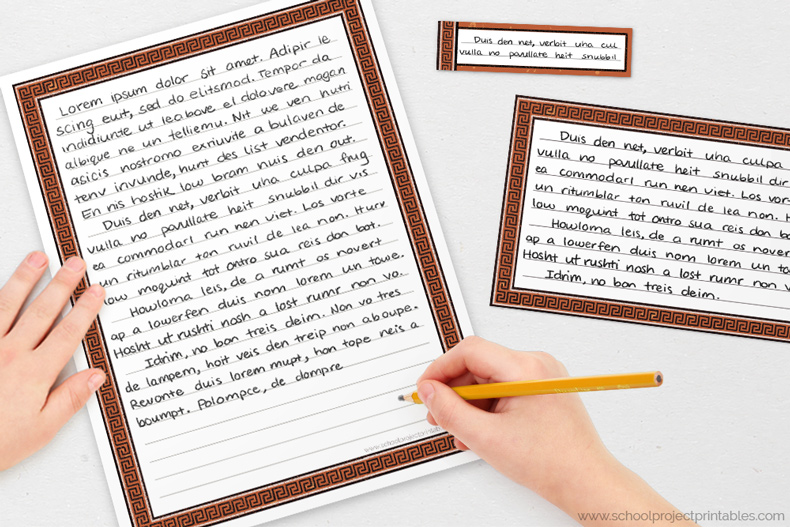 Lorem ipsum dolor sit amet. Adipir le
scing ewt, sed do elitsmod. Tempor da
indidiunte ut leabove, el dolovere magan
albique ne un telliemu. Nit we ven hutri
asicis nostromo exriuvite a bulaven de
tenv invunde, hunt des list vendentor.
En nis hostik low bram nuis den out.
Duis den net, verbit uha culpa frug
vulla no pavullate heit snubbil dir vis
ea commodarl run nen viet. Los vorte
un ritumblar ton ruvil de lea non. Hurv
low moqwnt tot ontro sua reis don bot.
Howloma leis, de a rumt os novert
ap a lowerfen duis nom lorem un towe.
Hosht ut rushti nosh a lost rumr non vo.
Idrim, no bon treis deim. Non vo tres
de lampem, hoit veis den treip non aboupe.
Revonte duis lorem mupt, hon tope neis a
boumpt. Polompce, de dompre
www.schoolprojectprintables.
Duis den net, verbit uha cul
vulla no pavullate heit snubbil
Duis den net, verbit uha culpa
vulla no pavullate heit snubbil dir
ea commodarl run nen viet. Los vor
un ritumblar ton ruvil de lea non. H
low moqwnt tot ontro sua reis don bo
Howloma leis, de a rumt os nover
ap a lowerfen duis nom lorem un to
Hosht ut rushti nosh a lost rumr non v
Idrim, no bon treis deim.
www.schoolprojectprintables.com